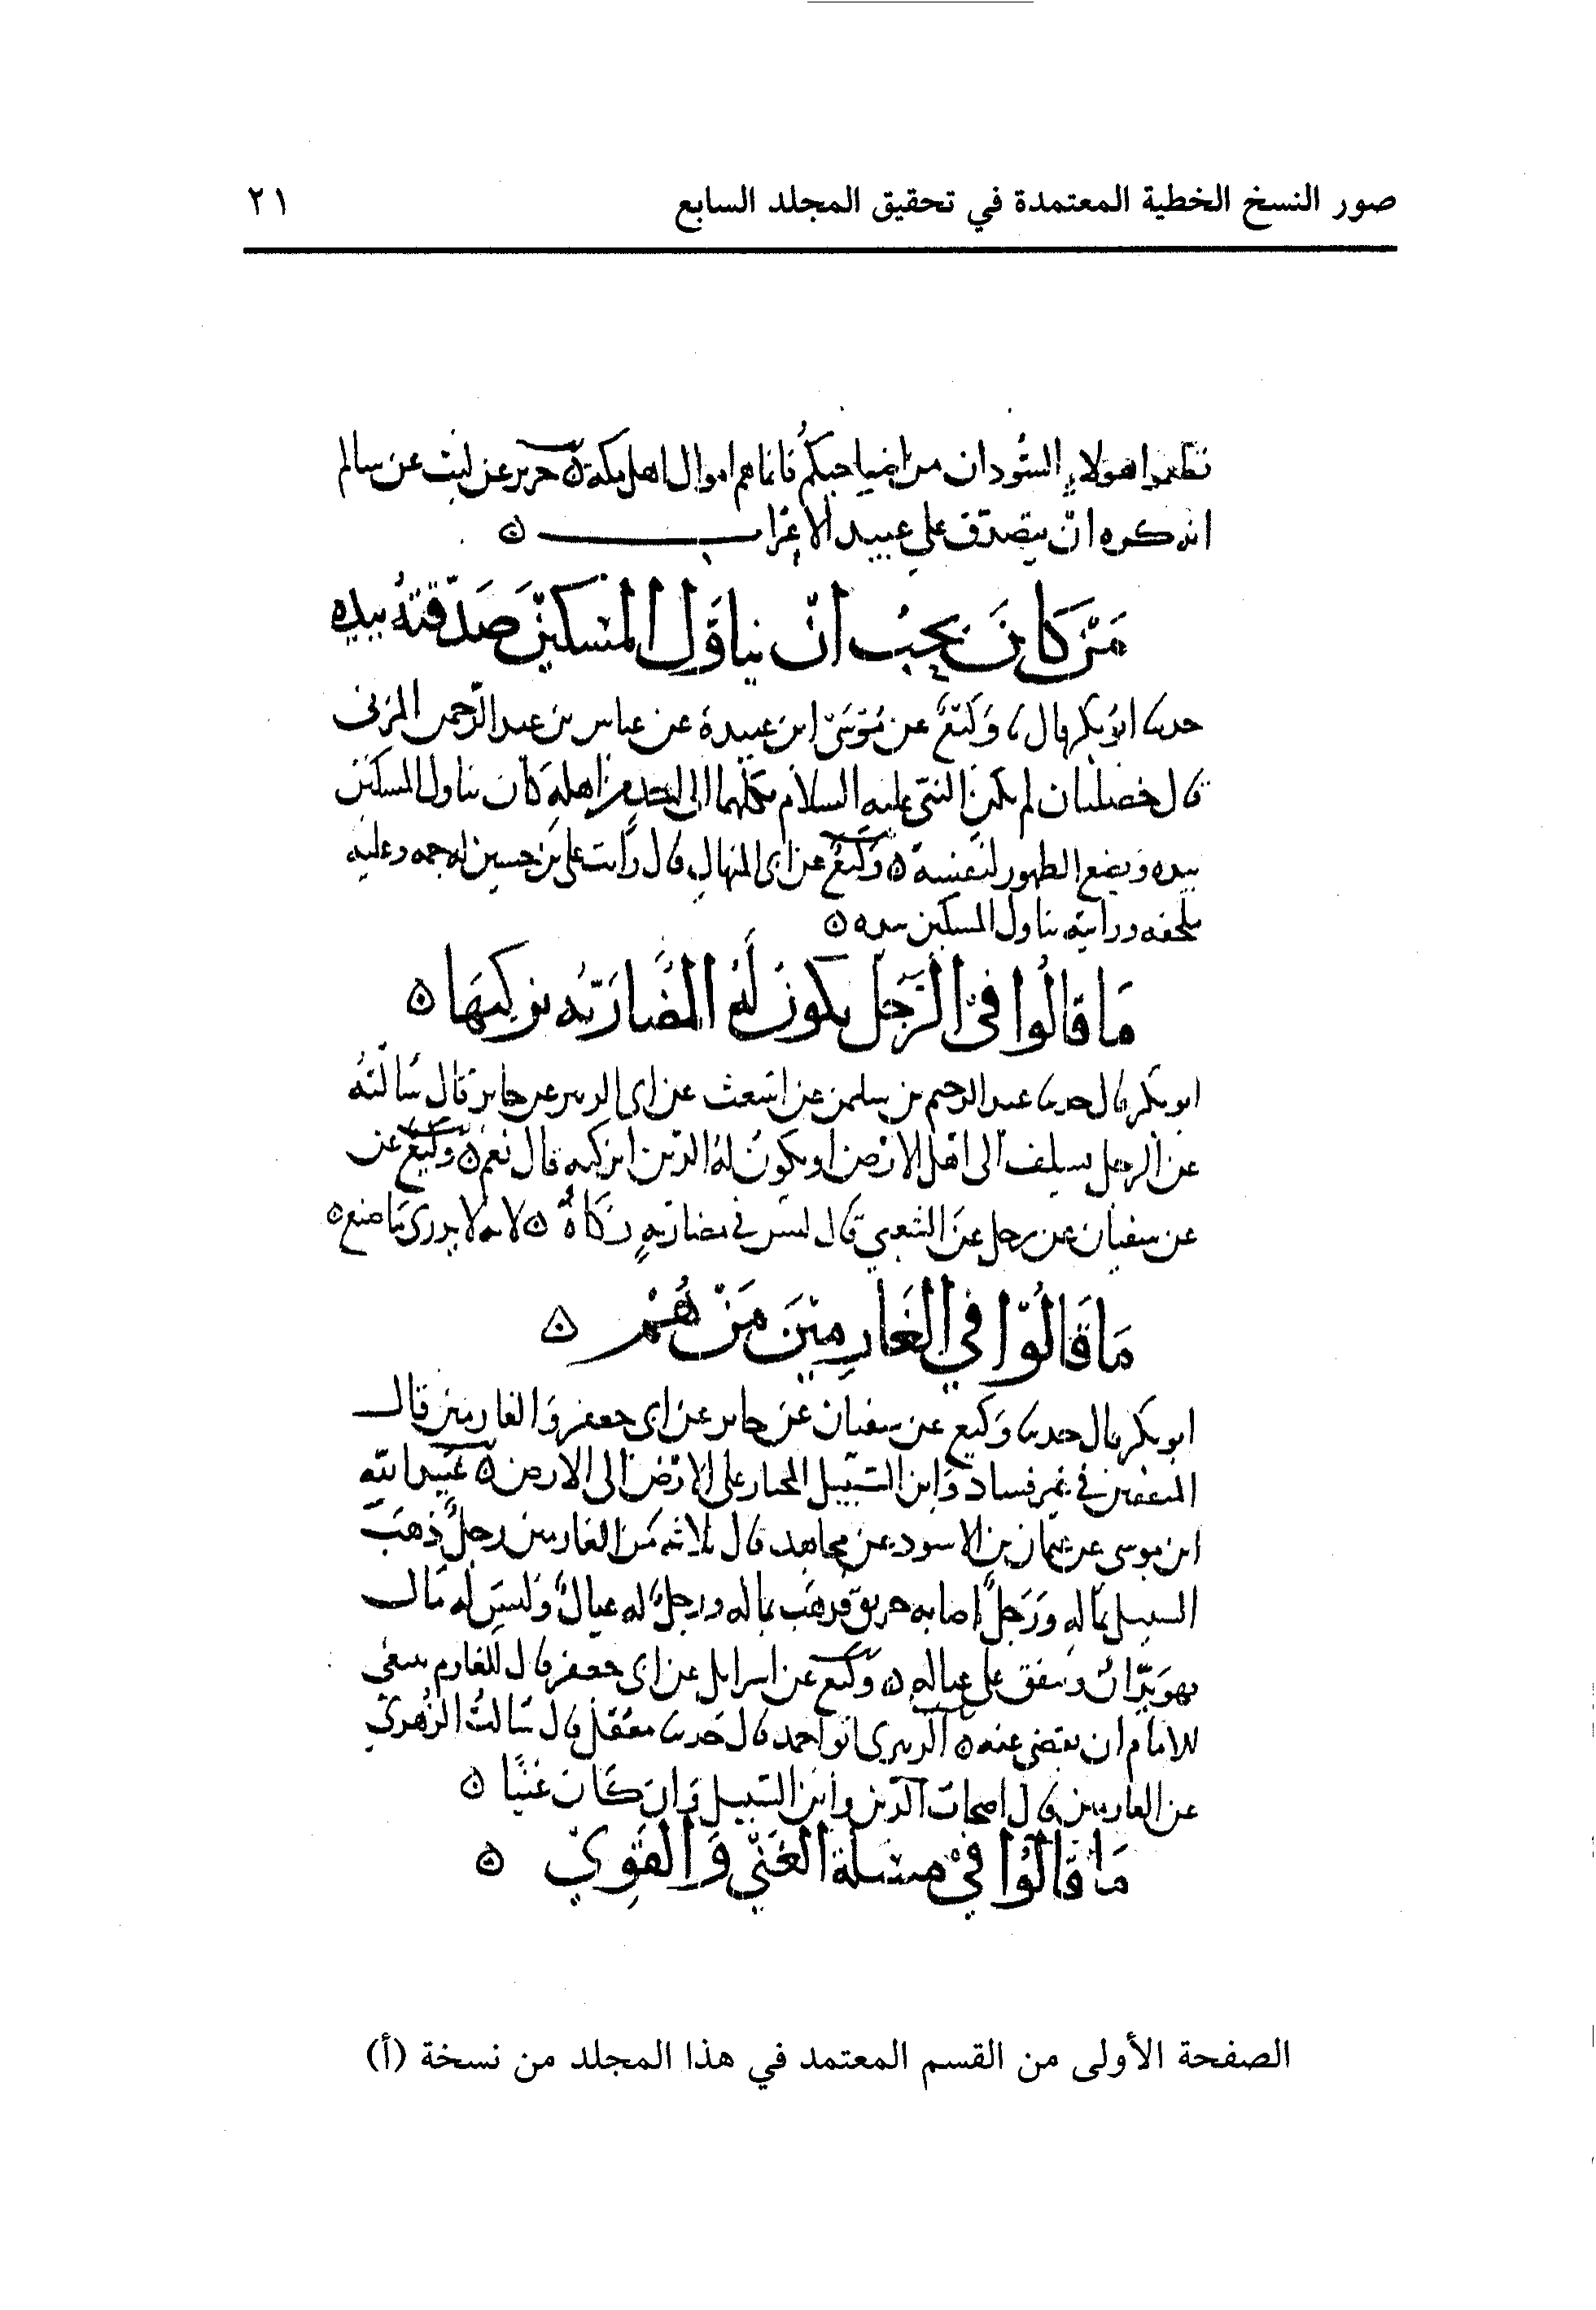 صور النسخ الخطية المعتمدة في تحقيق المجلد السابع ٢١
هولاء السودان من اضياحيكم فانما هم اموال اهل مكة ۞ جرير عن ليث عن سالم
انه كره ان يتصدق على عبيد الاعراب ۞
مَن كَانَ يحبُ ان يناوَل المسكين صَدَقتهُ بيده
حدىنا ابو بكر قال نا وَكيع عن موسى ابن عبيدة عن عباس بن عبد الرحمن المزنى
قال خصلتان لم يكن النبي عليه السلام يكلهما الى احد من اهله كان يناول المسكين
بيده ويضع الطهور لنفسه ۞ وكيع عن ابى المنهال قال رايت على بن حسين له جمه وعليه
ملحفه ورايته يناول المسكين بيده ۞
مَا قالُوا في الرَجل يكون لهُ المضَارَبه يزكيهَا ۞
ابو بكر قال حدىنا عبد الرحيم بن سليمن عن اشعث عن ابى الزبير عن جابر قال سَالتهُ
عن الرجل يسلف الى اهل الارض او يكون له الدين ايزكيه قال نعم ۞ وكيع عن
عن سفيان عن رجل عن الشعبي قال ليس في مضاربهٍ زكاةٌ ۞ لانه لا يدرى ما صنع ۞
مَا قَالُوْا في الغَارِمِيْنَ مَنْ هُمْ ۞
ابو بكر قال حدىنا وَكيع عن سفيان عن جابر عن ابى جعفر وَالغارمين قال
المنفقين في غير فساد وَابن السبيل المجتاز على الارض الى الارض ۞ عُبيد الله
ابن موسى عن عثمان بن الاسود عن مجاهد قال ثلاثه من الغارمين رجلٌ ذهبَ
السيل بماله ورَجلٌ اصابه حريق فذهب بماله ورجلٌ له عيالٌ وَليس له مَال
فهو يدّان وينفق على عياله ۞ وكيع عن اسرايل عن ابى جعفر قال للغارم ينبغى
للامام ان يقضى عنه ۞ الزبيرى ابو احمد قال حَدىنا معقل قال سَالتُ الزُهرىّ
عن الغارمين قال اصحاب الدين وابن السبيل وان كان غنيًا ۞
مَا قَالُوْا فيْ مسئلة الغَنيّ وَالقَوِيّ ۞
الصفحة الأولى من القسم المعتمد في هذا المجلد من نسخة (أ)